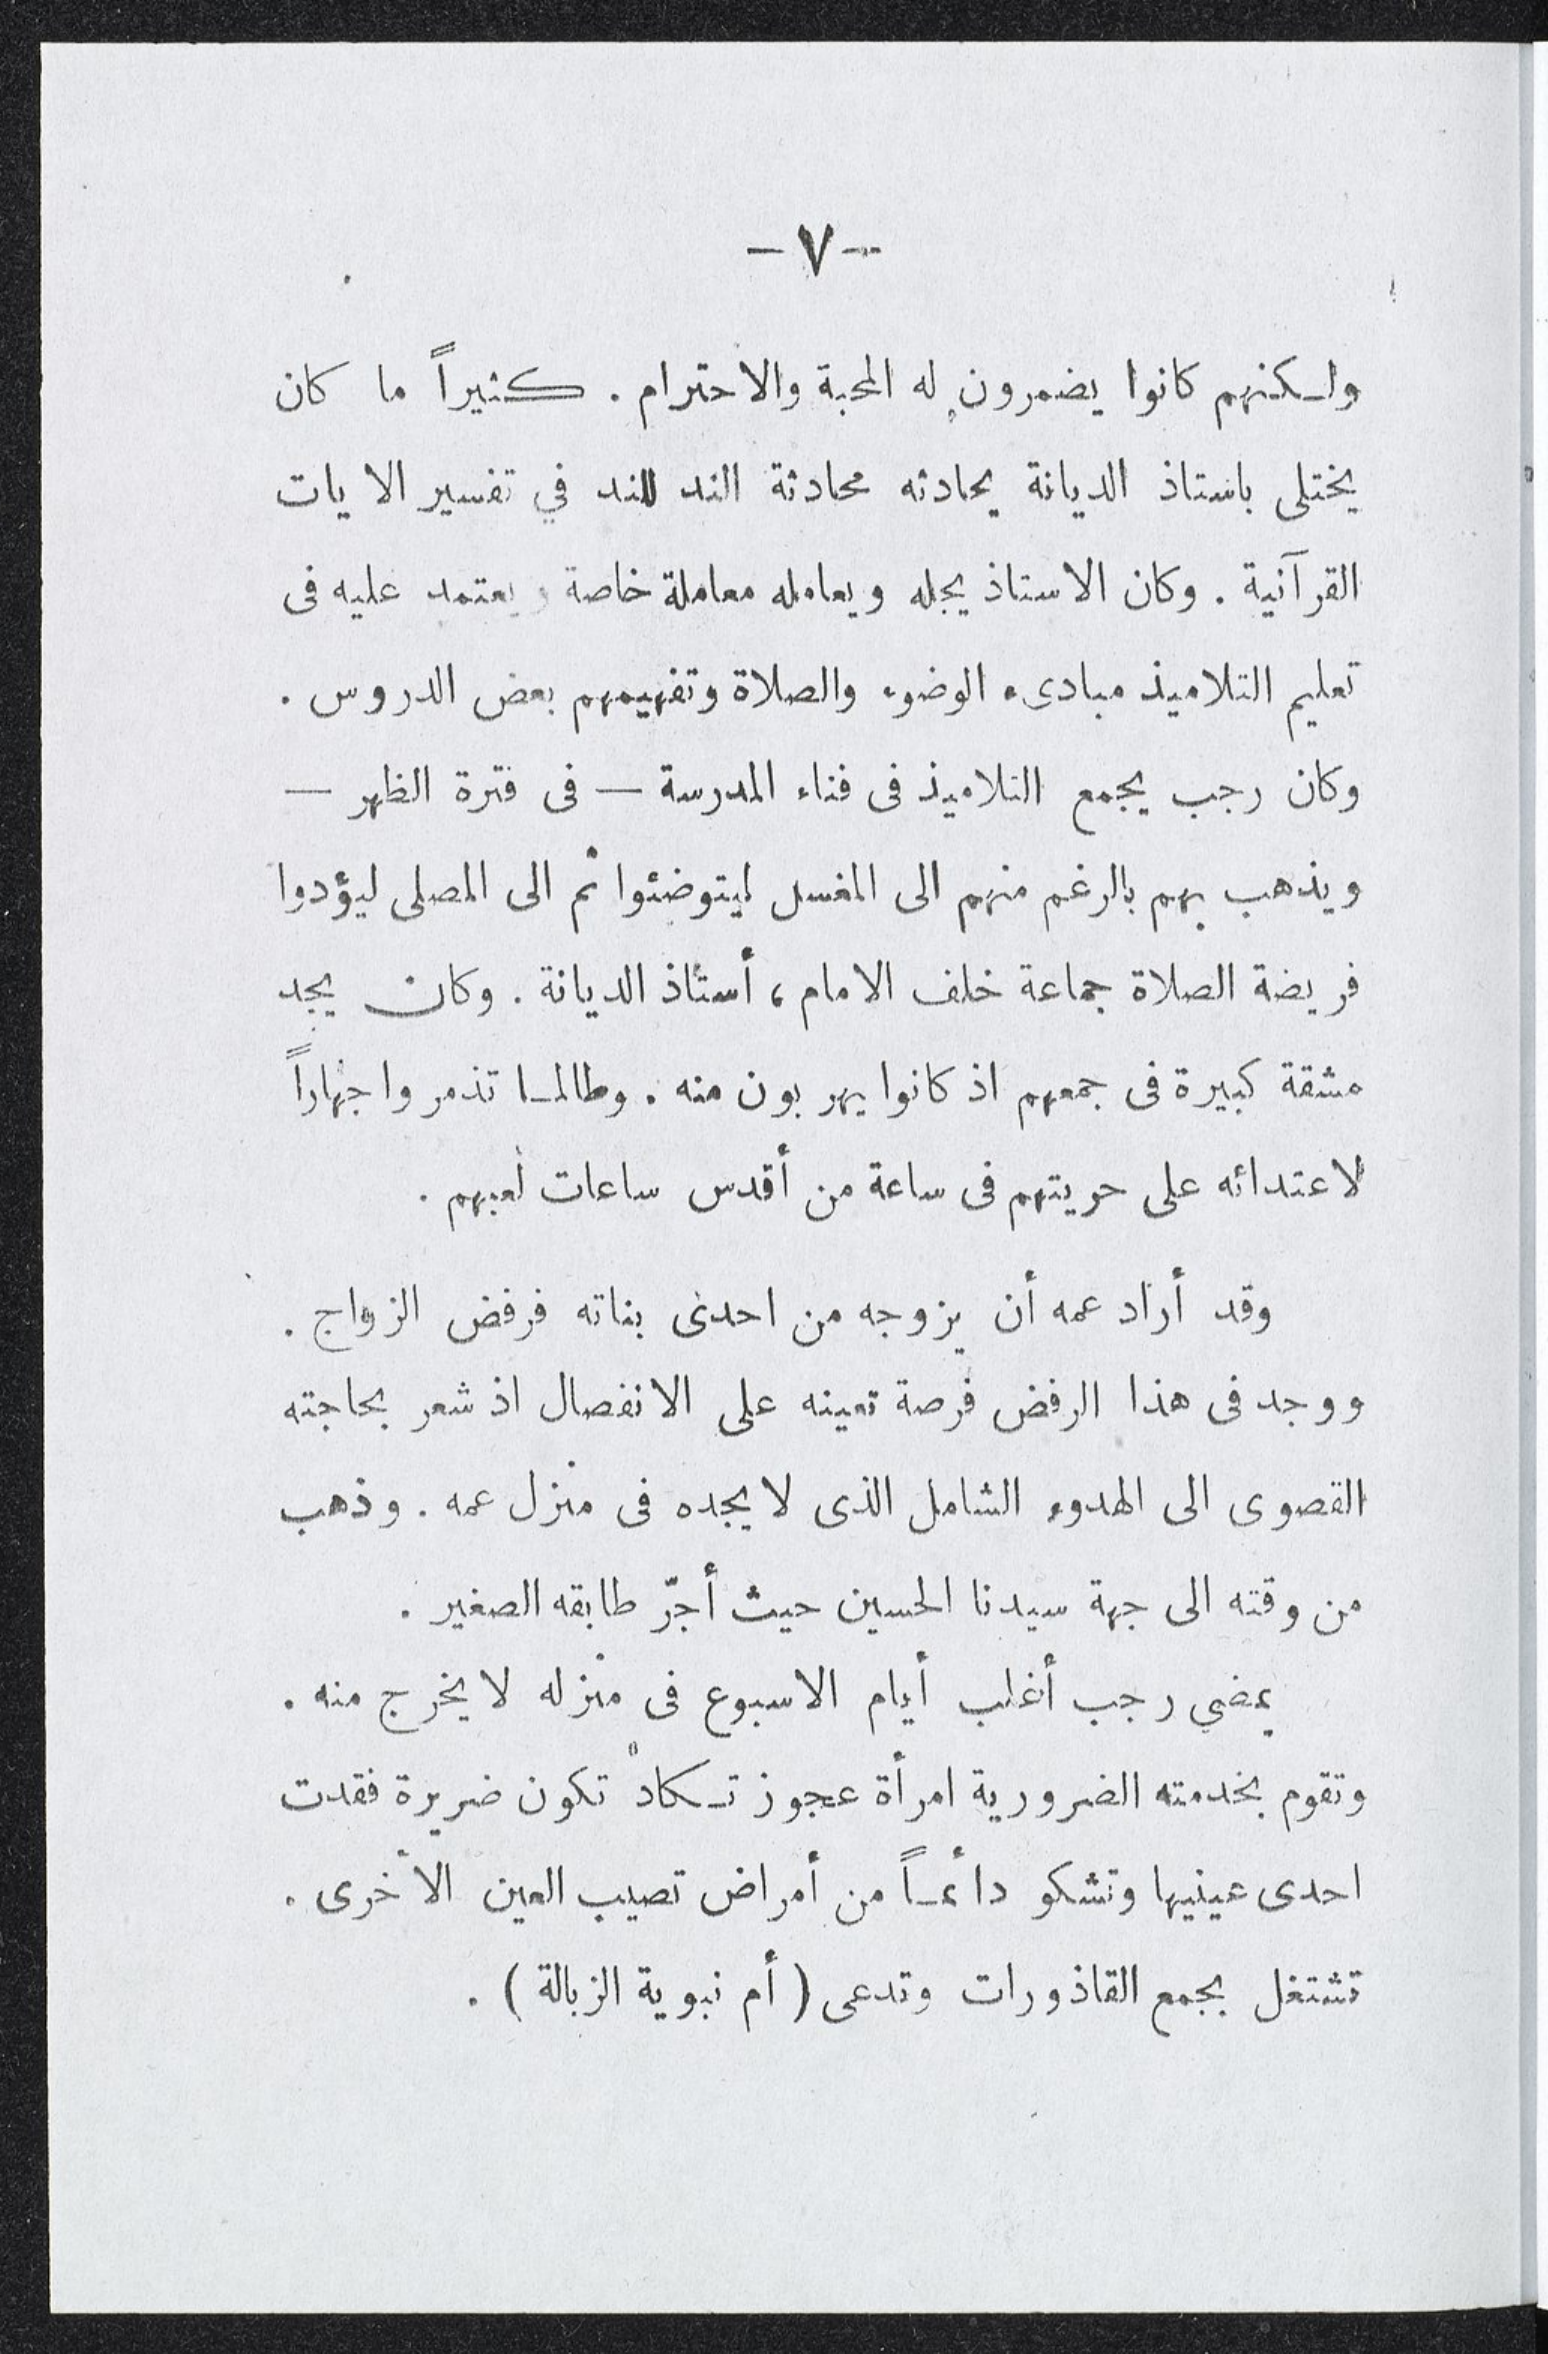 -٧-
ولكنهم كانوا يضمرون له المحبة والاحترام . كثيراً ما كان
يختلى باستاذ الديانة يحادثه محادثة الند للند في تفسير الايات
القرآنية . وكان الاستاذ يجله ويعامله معاملة خاصة ويعتمد عليه فى
تعليم التلاميذ مبادىء الوضوء والصلاة وتفهيمهم بعض الدروس .
وكان رجب يجمع التلاميذ فى فناء المدرسة — فى فترة الظهر —
ويذهب بهم بالرغم منهم الى المغسل ليتوضئوا ثم الى المصلى ليؤدوا
فريضة الصلاة جماعة خلف الامام ، أستاذ الديانة . وكان يجد
مشقة كبيرة فى جمعهم اذ كانوا يهربون منه . وطالما تذمروا جهاراً
لاعتدائه على حريتهم فى ساعة من أقدس ساعات لعبهم .
وقد أراد عمه أن يزوجه من احدى بناته فرفض الزواج .
ووجد فى هذا الرفض فرصة تعينه على الانفصال اذ شعر بحاجته
القصوى الى الهدوء الشامل الذى لا يجده فى منزل عمه . وذهب
من وقته الى جهة سيدنا الحسين حيث أجّر طابقه الصغير .
يمضي رجب أغلب أيام الاسبوع فى منزله لا يخرج منه .
وتقوم بخدمته الضرورية امرأة عجوز تكاد تكون ضريرة فقدت
احدى عينيها وتشكو دائماً من أمراض تصيب العين الأخرى .
تشتغل بجمع القاذورات وتدعى ( أم نبوية الزبالة ) .